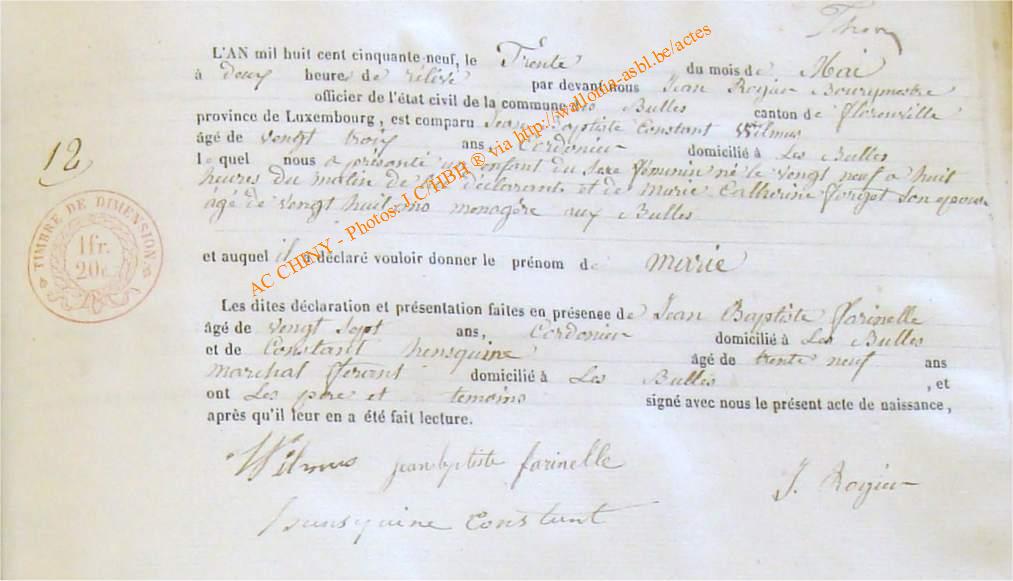 L'AN mil huit cent cinquante neuf, le Trente du mois de Mai
à deux heures de rélévé par devant nous Jean Rogier Bourgmestre
officier de l'état civil de la commune des Bulles canton de florenville
province de Luxembourg, est comparu Jean Baptiste Constant Wilmus
âgé de vengt trois ans, Cordonier domicilié à Les Bulles
lequel nous a présanté un enfant du sexe féminin né le vengt neuf a huit
heures du matin de lui déclarant et de marie Catherine forget son epouse
âgé de vengt huit ans menagère aux Bulles
et auquel il a déclaré vouloir donner le prénom de marie
Les dites déclaration et présentation faites en présense de Jean Baptiste farinelle
âgé de vengt sept ans, Cordonier domicilié à Les Bulles
et de Constant hensquine âgé de trente neuf ans
marchal ferant domicilié à Les Bulles , et
ont Les pere et temoins signé avec nous le présent acte de naissance,
après qu'il leur en a été fait lecture.
Wilmus jean baptiste farinelle
J. Rogier
hensquine Constant
12
TIMBRE DE DIMENSION
1 fr.
20 c.
AC CHINY - Photos: J.C HBH ® via http://wallonia-asbl.be/actes